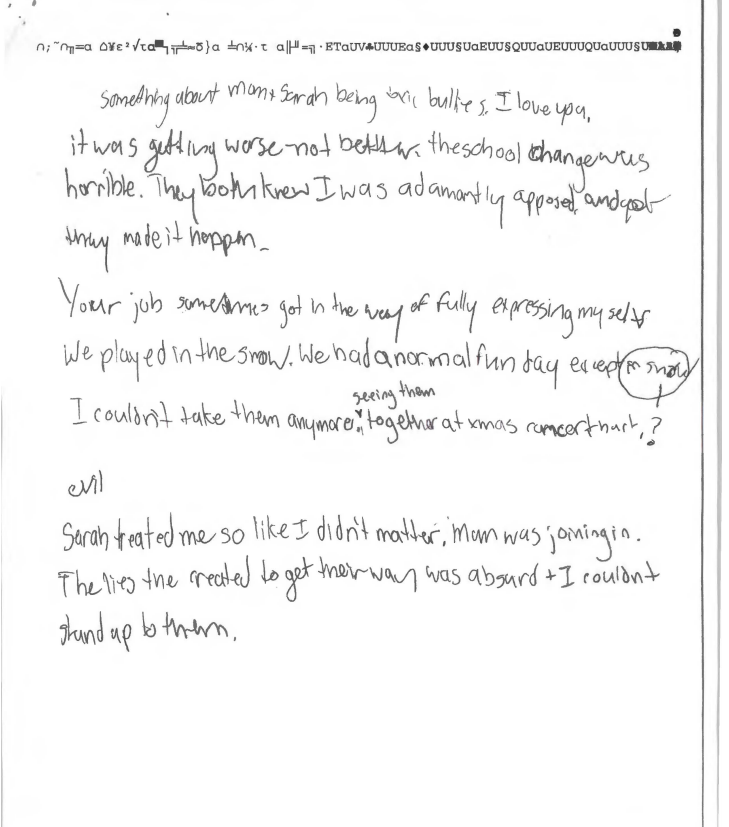 Something about mom + Sarah being toxic bullies, I love you,
it was getting worse not better. the school change was
horrible. They both knew I was adamantly apposed, and yet
they made it happen_
Your job sometimes got in the way of fully expressing myself
We played in the snow. We had a normal fun day except for snow
seeing them
I couldn't take them anymore. together at xmas concert hurt, ?
evil
Sarah treated me so like I didn't matter, mom was joining in.
The lies the created to get their way was absurd + I couldnt
stand up to them.